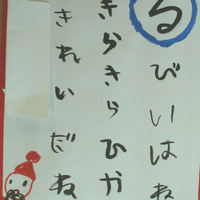 るびいはね
きらきらひか
きれいだね